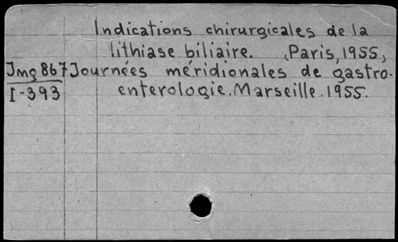 Indications chirurgicales de la
lithiase biliaire. Paris, 1955,
Img 867 Journées méridionales de gastro-
I-393 enterologie. Marseille. 1955.